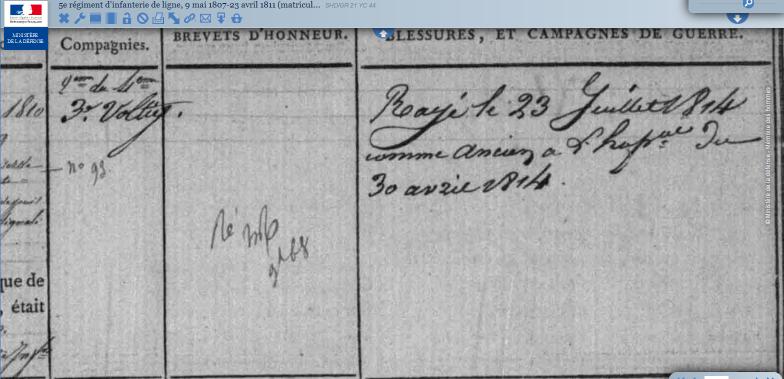 5e régiment d'infanterie de ligne, 9 mai 1807-23 avril 1811 (matricul... SHD/GR 21 YC 44
MINISTÈRE
DE LA DÉFENSE
Compagnies.
BREVETS D'HONNEUR.
BLESSURES, ET CAMPAGNES DE GUERRE.
du 4eme
3e Voltig.
1810
n° 93.
Rayé le 23 Juillet 1814
comme ancien a L'hop.al du
30 avril 1814.
que de
, était
© Ministère de la défense - Mémoire des hommes